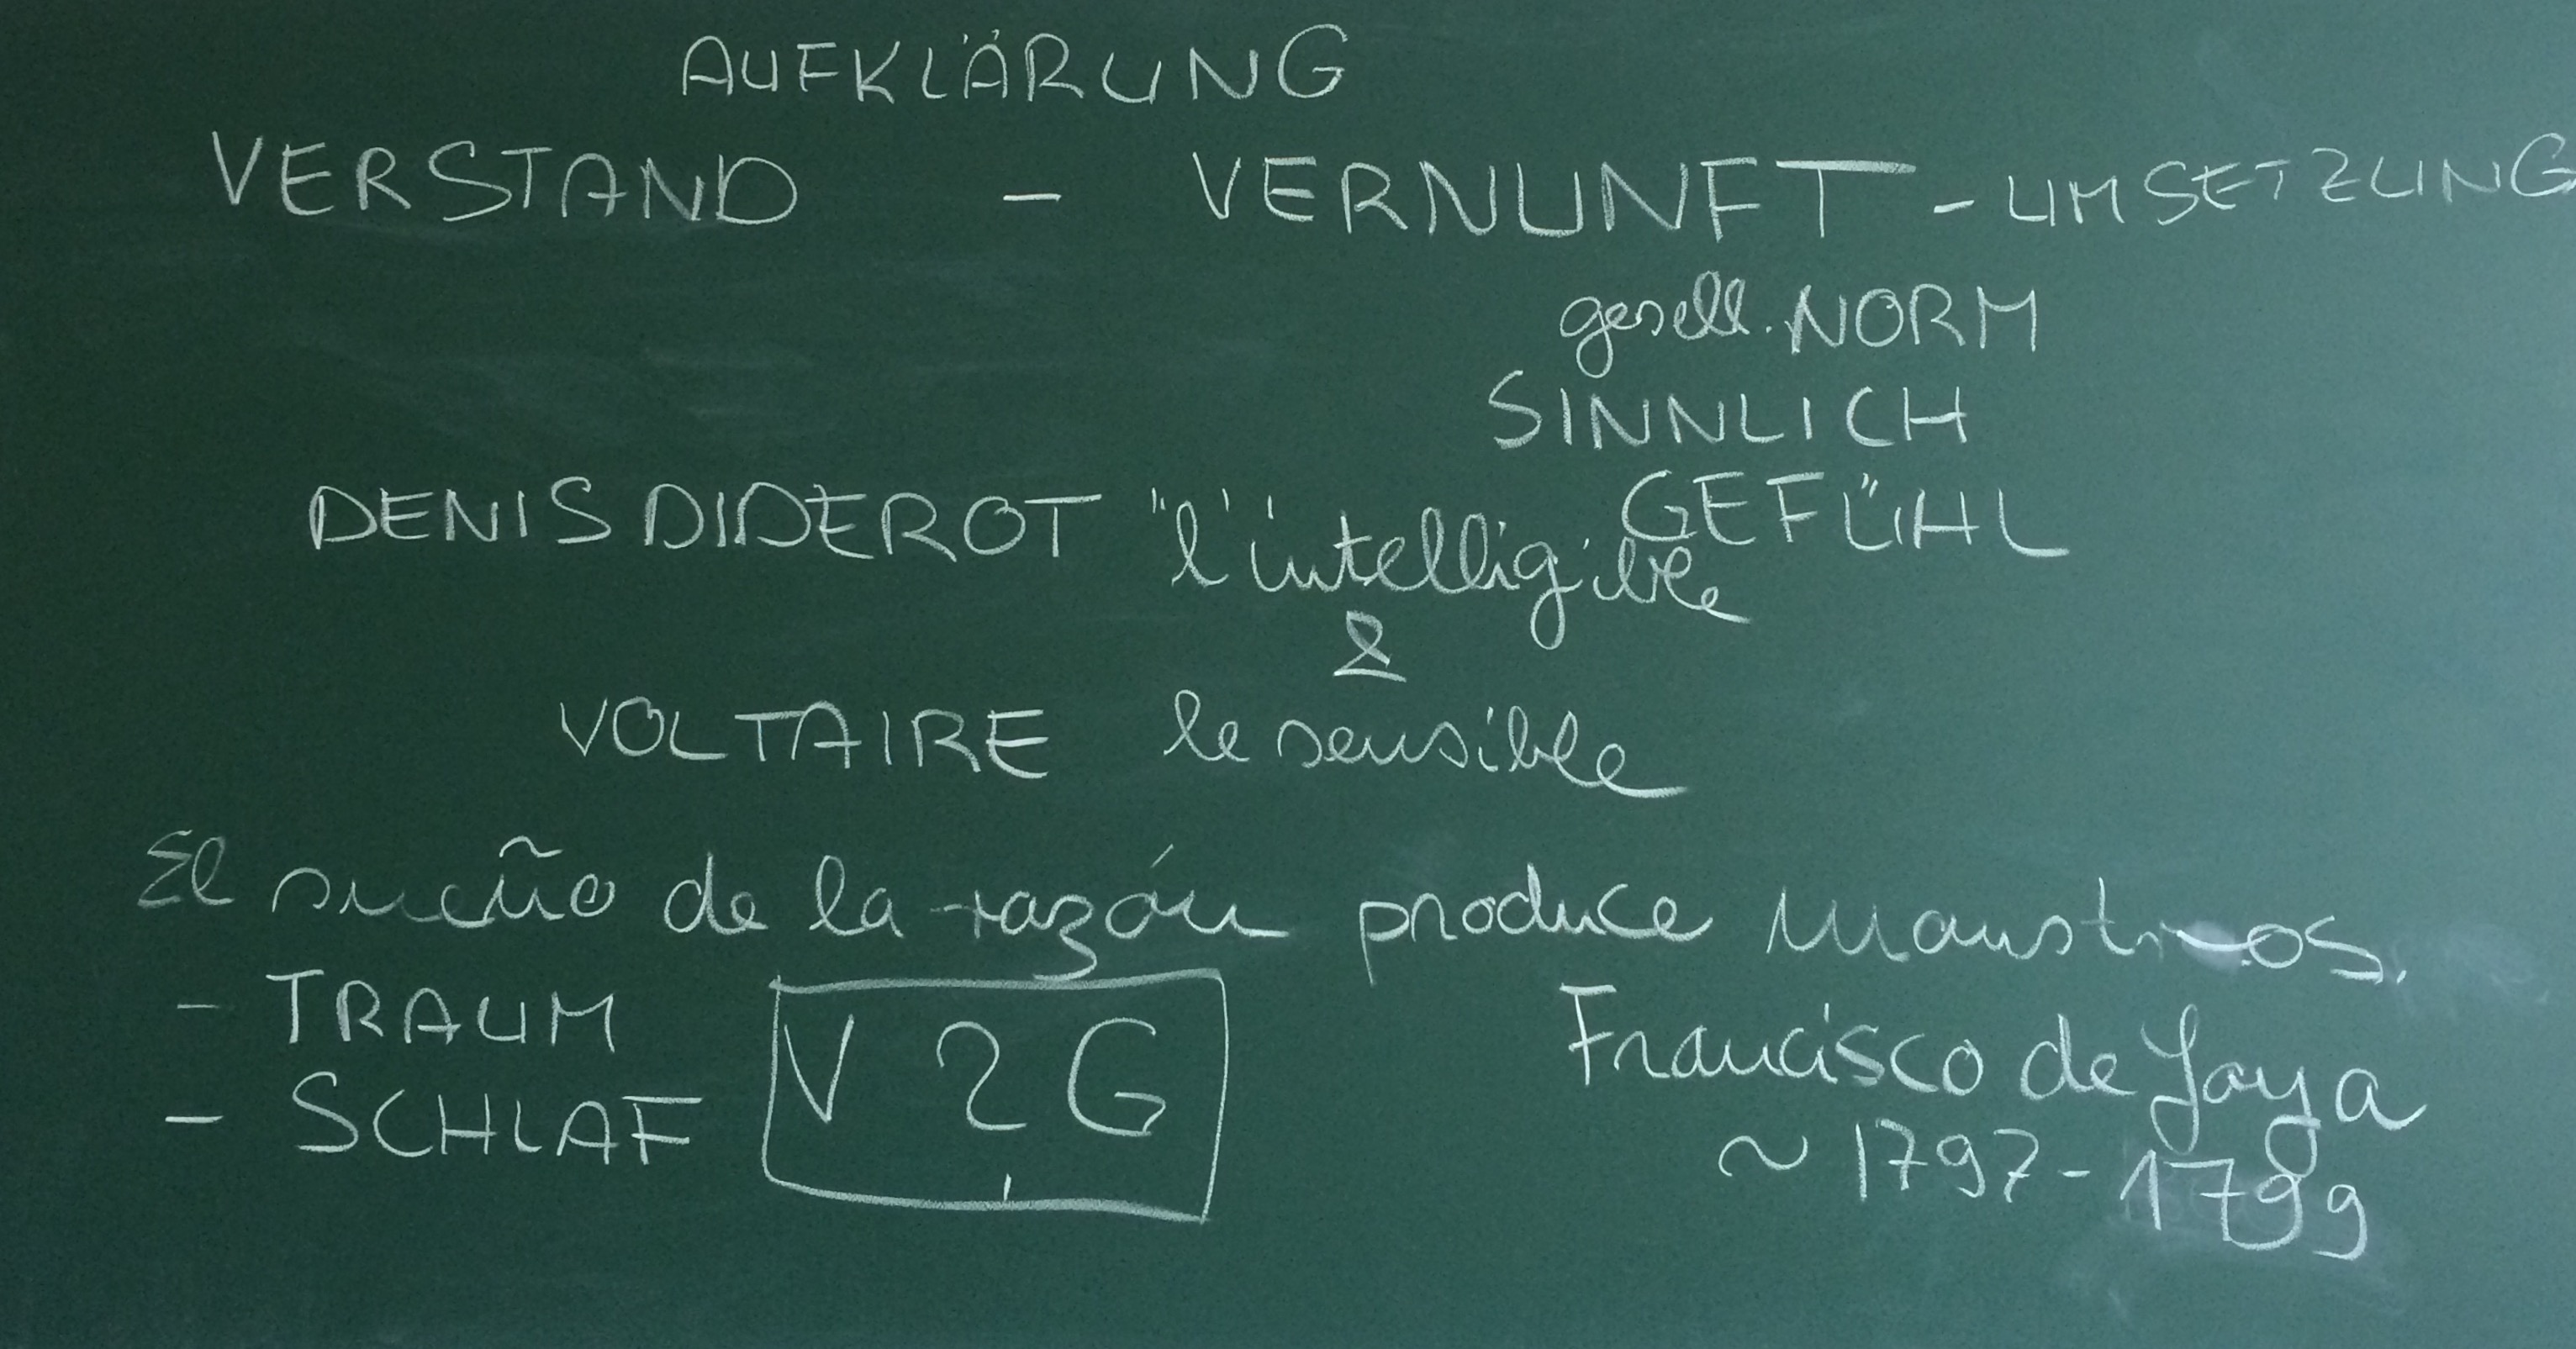 AUFKLÄRUNG
VERSTAND - VERNUNFT - UMSETZUNG
gesell. NORM
SINNLICH
GEFÜHL
DENIS DIDEROT "l'intelligible
&
VOLTAIRE le sensible
El sueño de la razón produce monstros.
- TRAUM
- SCHLAF
V 2 G
Francisco de Goya
~ 1797-1799